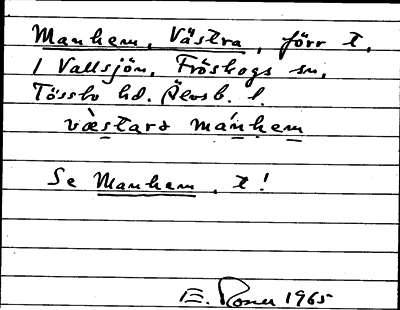 Manhem, Västra, förr t.
/ Vallsjön, Fröskogs sn,
Tössbo hd. Älvsb. l.
væ̀starə mánhem
Se Manhem, t!
E. Roser 1965